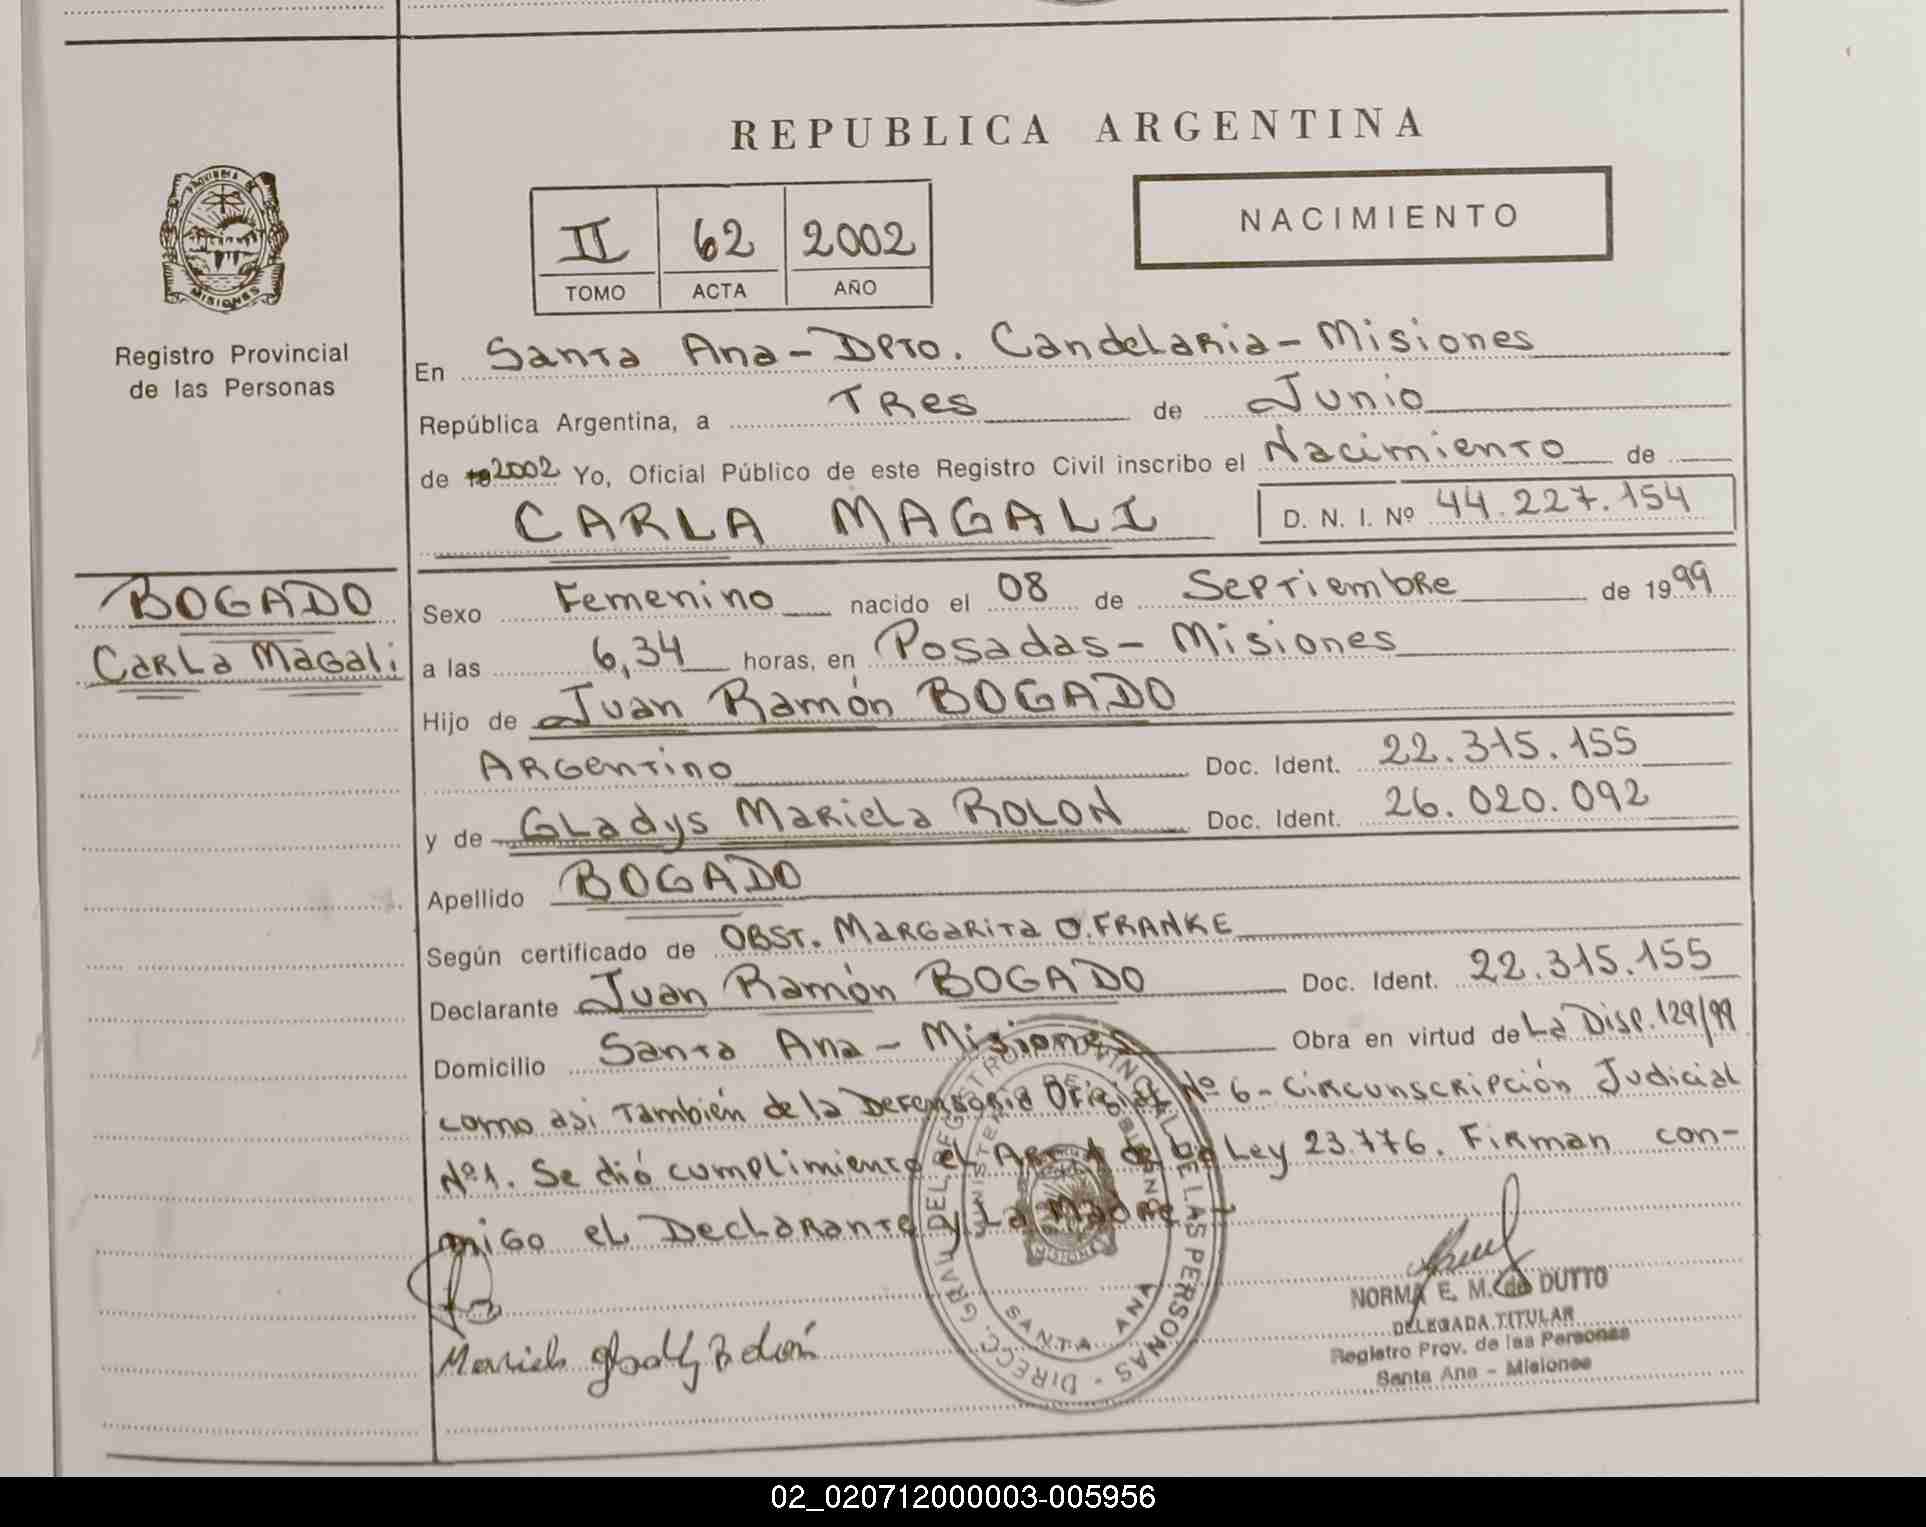 REPUBLICA ARGENTINA
II 62 2002
TOMO ACTA AÑO
NACIMIENTO
PROVINCIA DE
MISIONES
Registro Provincial
de las Personas
En Santa Ana - Dpto. Candelaria - Misiones
República Argentina, a Tres de Junio
de 19 2002 Yo, Oficial Público de este Registro Civil inscribo el Nacimiento de
CARLA MAGALI D. N. I. Nº 44.227.154
BOGADO
Carla Magali
Sexo Femenino nacido el 08 de Septiembre de 1999
a las 6,34 horas, en Posadas - Misiones
Hijo de Juan Ramón BOGADO
Argentino Doc. Ident. 22.315.155
y de Gladys Mariela ROLON Doc. Ident. 26.020.092
Apellido BOGADO
Según certificado de OBST. MARGARITA O. FRANKE
Declarante Juan Ramón BOGADO Doc. Ident. 22.315.155
Domicilio Santa Ana - Misiones Obra en virtud de La Disp. 129/99
como asi también de la Defensoria Oficial Nº 6 - Circunscripción Judicial
Nº 1. Se dió cumplimiento el Art. 1 de la Ley 23.776. Firman con-
migo el Declarante y La Madre
DIRECC. GRAL. DEL REGISTRO PROVINCIAL DE LAS PERSONAS
MINISTERIO DE GOBIERNO
SANTA ANA
NORMA E. M. de DUTTO
DELEGADA TITULAR
Registro Prov. de las Personas
Santa Ana - Misiones
02_020712000003-005956